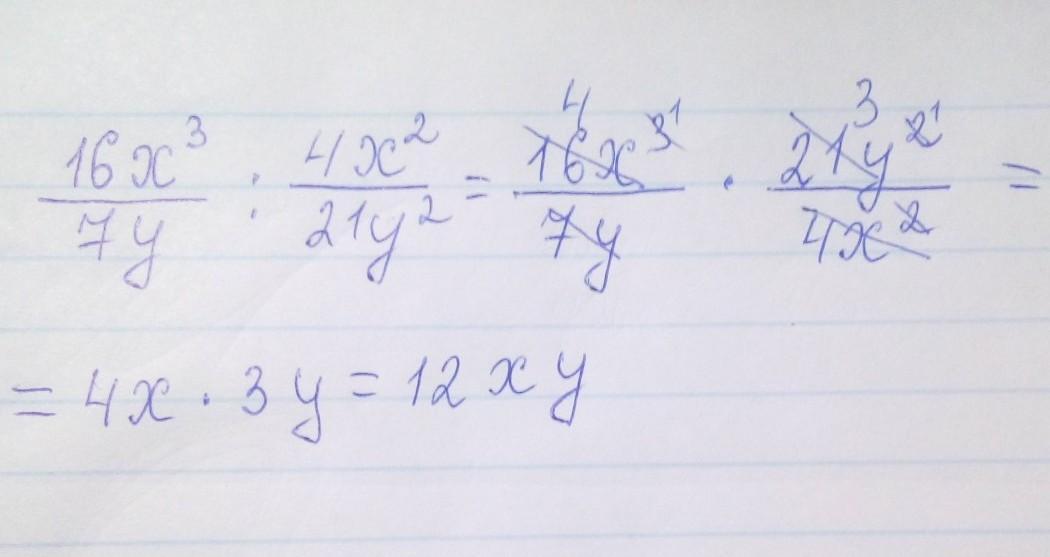 16x³/7y : 4x²/21y² = 16x³/7y · 21y²/4x² =
= 4x · 3y = 12xy